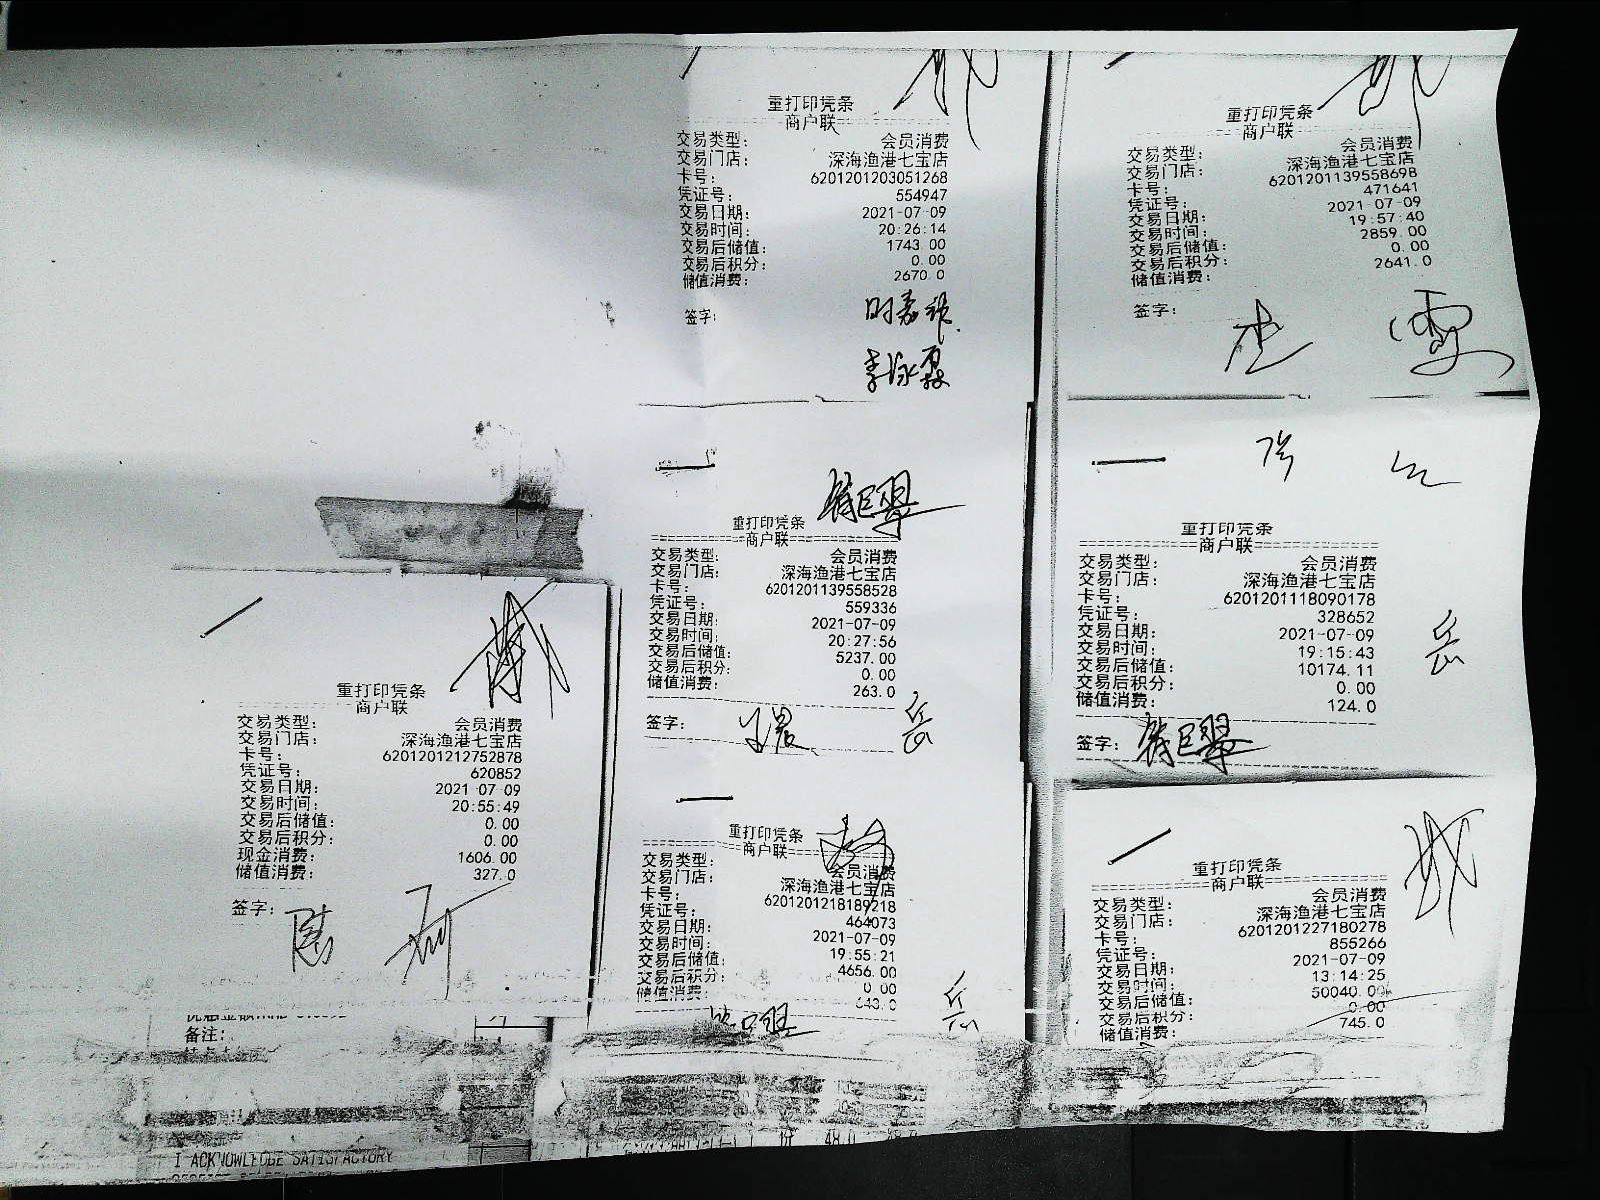 重打印凭条
商户联
交易类型: 会员消费
交易门店: 深海渔港七宝店
卡号: 6201201203051268
凭证号: 554947
交易日期: 2021-07-09
交易时间: 20:26:14
交易后储值: 1743.00
交易后积分: 0.00
储值消费: 2670.0
签字:
重打印凭条
商户联
交易类型: 会员消费
交易门店: 深海渔港七宝店
卡号: 6201201139558698
凭证号: 471641
交易日期: 2021-07-09
交易时间: 19:57:40
交易后储值: 2859.00
交易后积分: 0.00
储值消费: 2641.0
签字:
重打印凭条
商户联
交易类型: 会员消费
交易门店: 深海渔港七宝店
卡号: 6201201139558528
凭证号: 559336
交易日期: 2021-07-09
交易时间: 20:27:56
交易后储值: 5237.00
交易后积分: 0.00
储值消费: 263.0
签字: 岳
重打印凭条
商户联
交易类型: 会员消费
交易门店: 深海渔港七宝店
卡号: 6201201118090178
凭证号: 328652
交易日期: 2021-07-09
交易时间: 19:15:43
交易后储值: 10174.11
交易后积分: 0.00
储值消费: 124.0
岳
签字:
重打印凭条
商户联
交易类型: 会员消费
交易门店: 深海渔港七宝店
卡号: 6201201212752878
凭证号: 620852
交易日期: 2021-07-09
交易时间: 20:55:49
交易后储值: 0.00
交易后积分: 0.00
现金消费: 1606.00
储值消费: 327.0
签字:
备注:
I ACKNOWLEDGE SATISFACTORY
重打印凭条
商户联
交易类型: 会员消费
交易门店: 深海渔港七宝店
卡号: 6201201218189218
凭证号: 464073
交易日期: 2021-07-09
交易时间: 19:55:21
交易后储值: 4656.00
交易后积分: 0.00
储值消费: 643.0
岳
重打印凭条
商户联
交易类型: 会员消费
交易门店: 深海渔港七宝店
卡号: 6201201227180278
凭证号: 855266
交易日期: 2021-07-09
交易时间: 13:14:25
交易后储值: 50040.00
交易后积分: 0.00
储值消费: 745.0